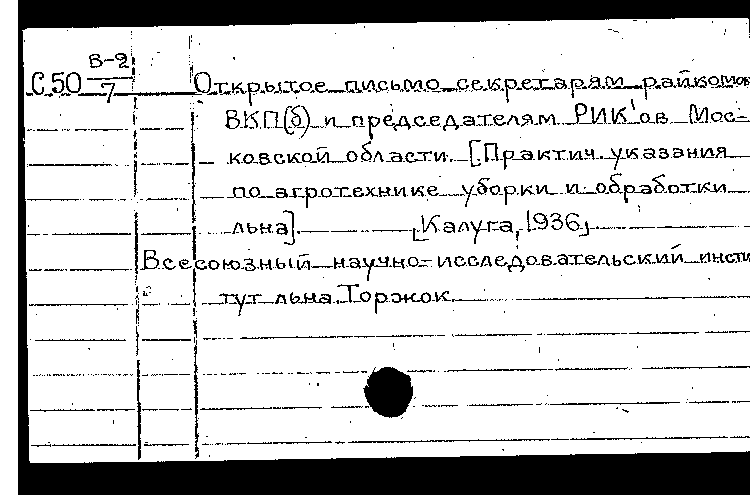 С50 В-2/7 Открытое письмо секретарям райкомов
ВКП(б) и председателям РИК'ов Мос-
ковской области. [Практич. указания
по агротехнике уборки и обработки
льна]. [Калуга, 1936]
Всесоюзный научно-исследовательский инсти
тут льна. Торжок.